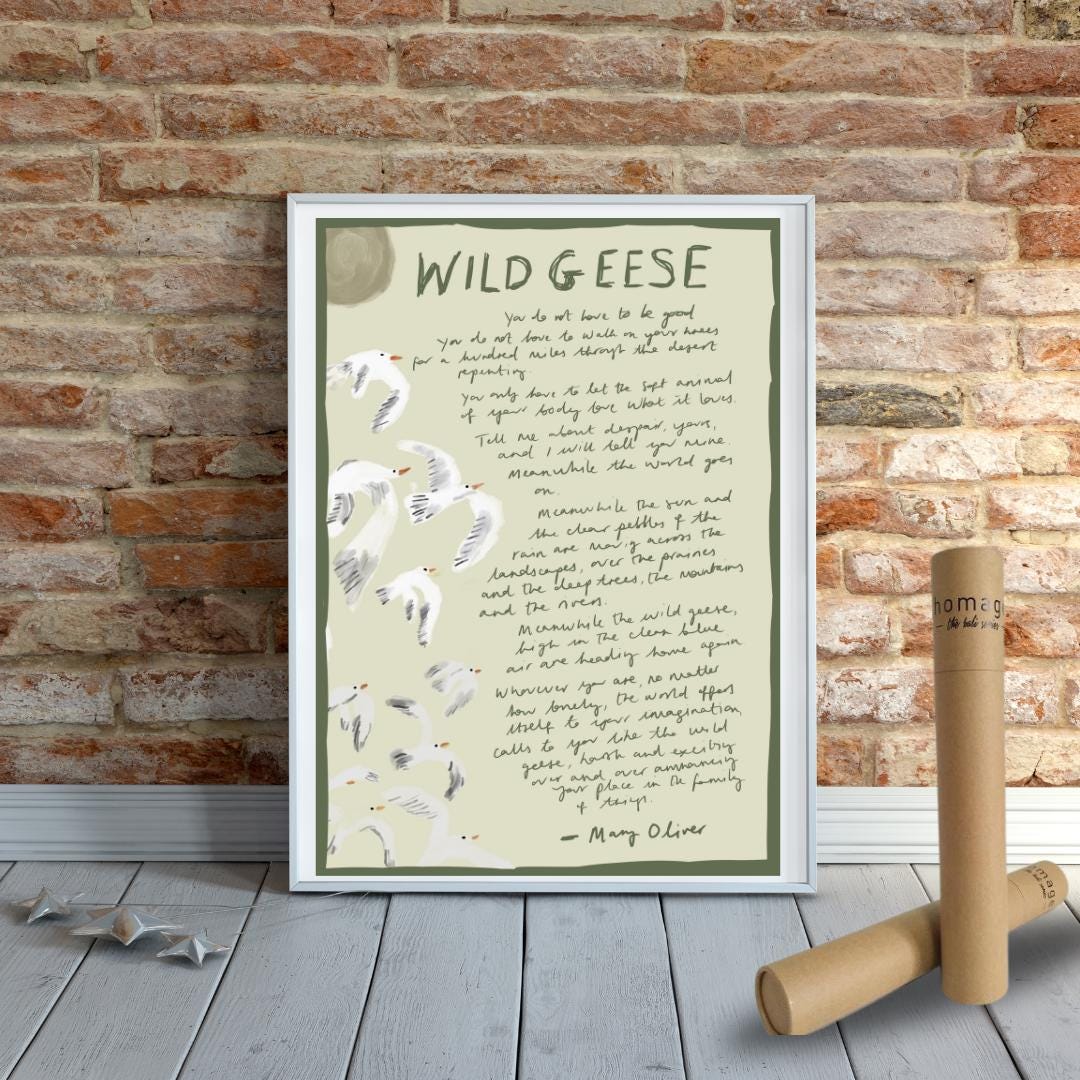 WILD GEESE
You do not have to be good
You do not have to walk on your knees
for a hundred miles through the desert
repenting.
You only have to let the soft animal
of your body love what it loves.
Tell me about despair, yours,
and I will tell you mine.
Meanwhile the world goes
on.
Meanwhile the sun and
the clear pebbles of the
rain are moving across the
landscapes, over the prairies
and the deep trees, the mountains
and the rivers.
Meanwhile the wild geese,
high in the clean blue
air are heading home again
Whoever you are, no matter
how lonely, the world offers
itself to your imagination,
calls to you like the wild
geese, harsh and exciting
over and over announcing
your place in the family
of things.
— Mary Oliver
homag
— the bali series
mage